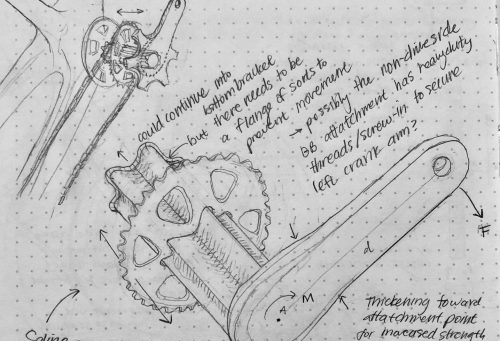 could continue into
bottom bracket
but there needs to be
a flange of sorts to
prevent movement
→ possibly the non-driveside
BB attachment has heavy duty
threads/screw-in to secure
left crank arm?
F
d
M
A
thickening toward
attachment point
for increased strength